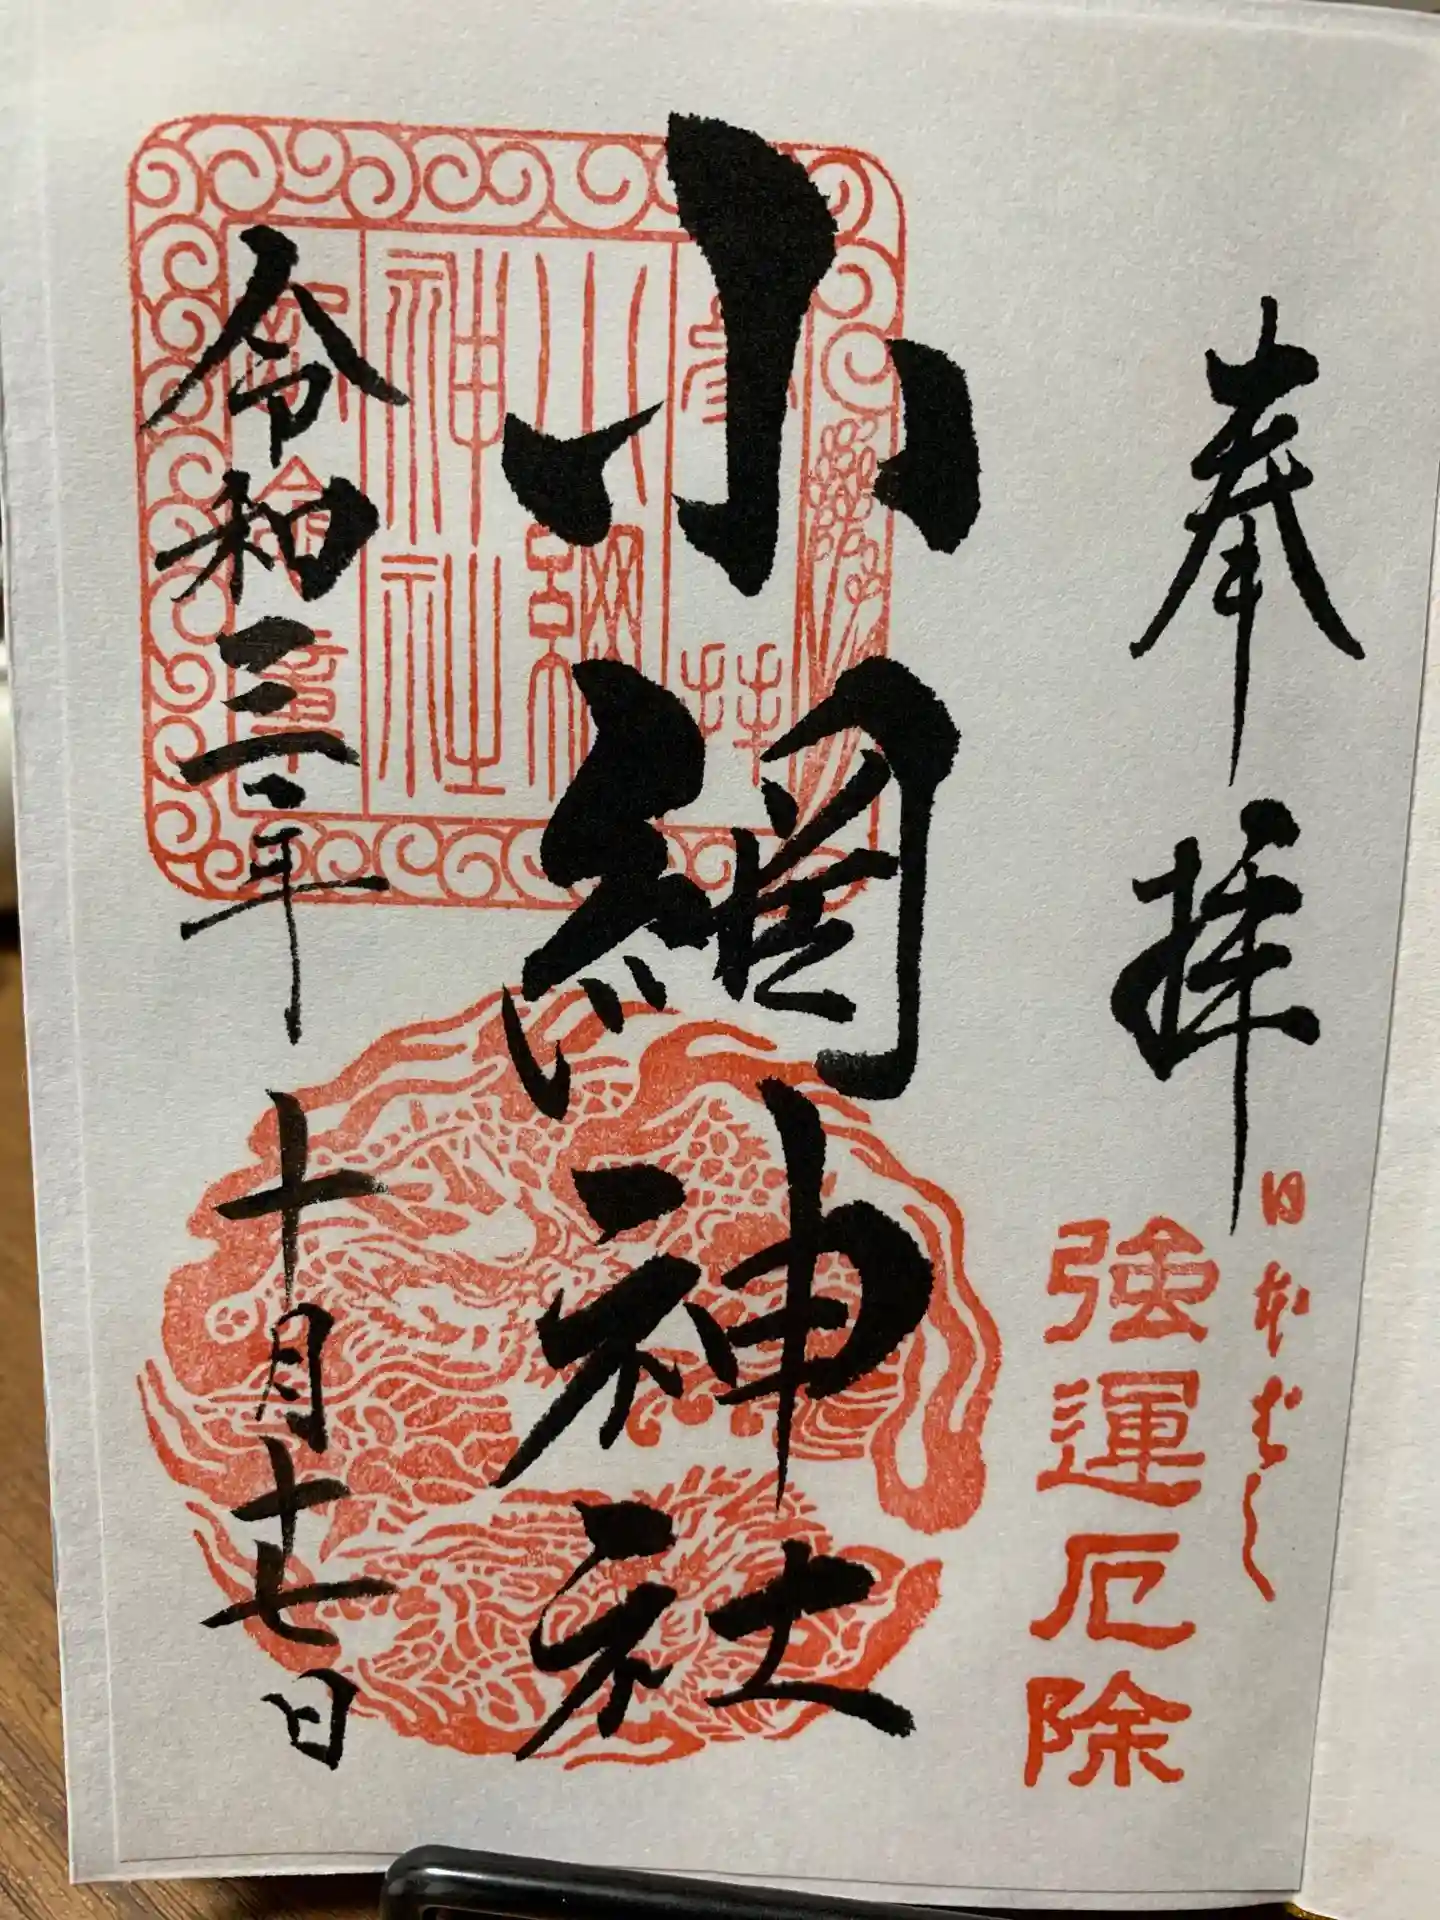 奉拝
日本ばし
強運厄除
小網神社
小網
神社
令和三年十月十七日